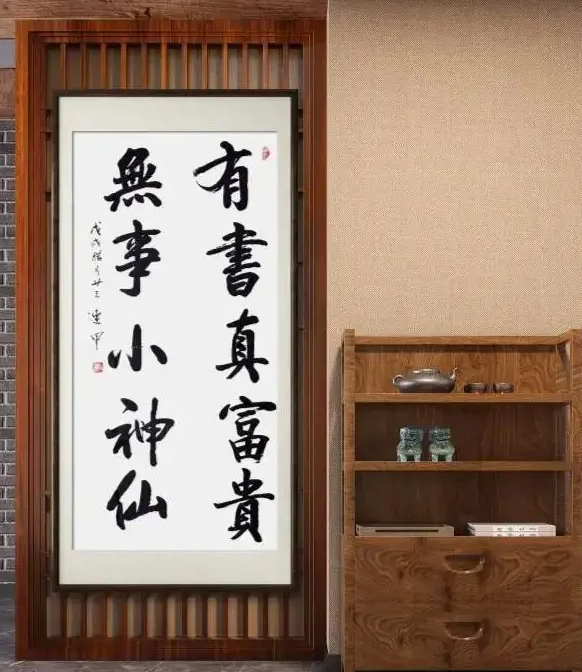 有書真富貴
無事小神仙
戊戌臘月廿三 運甲